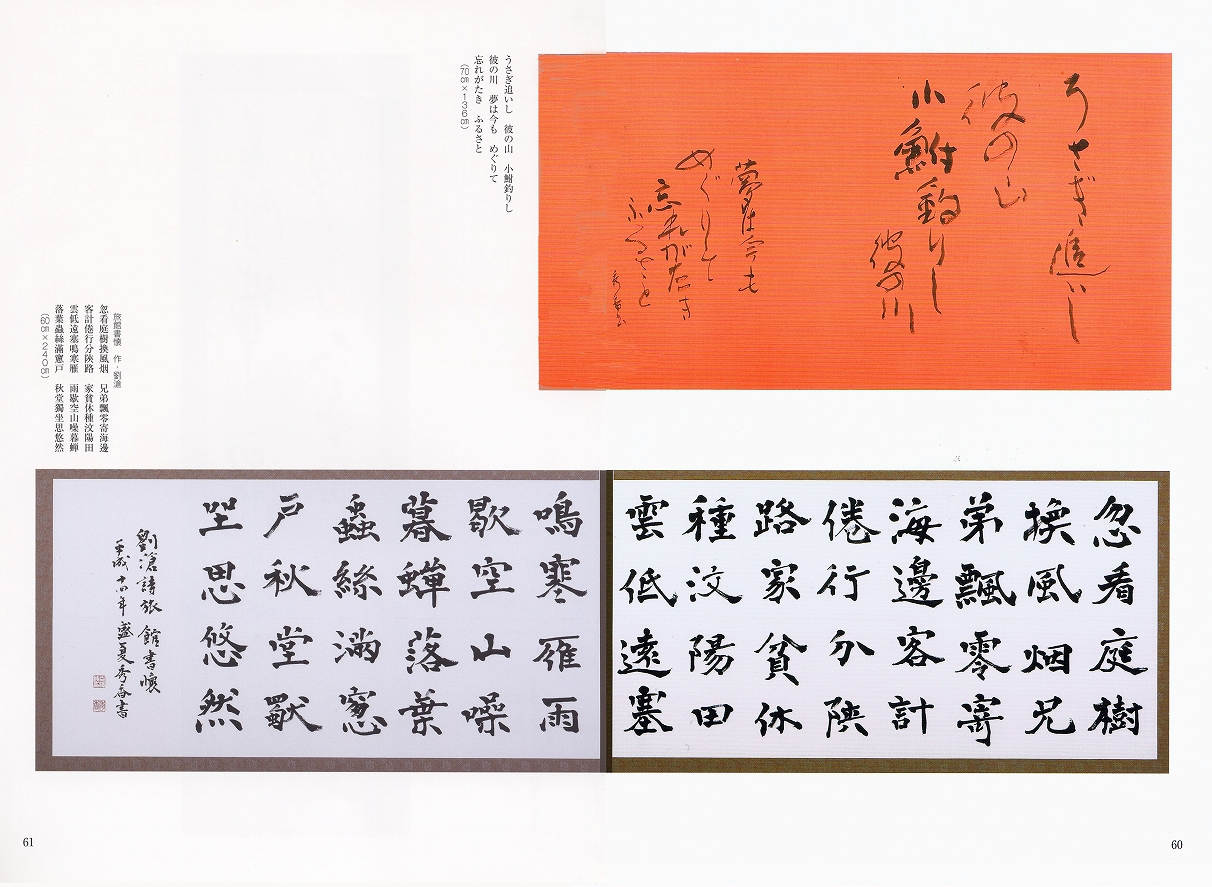 うさぎ追いし
彼の山
小鮒釣りし
彼の川
夢は今も
めぐりて
忘れがたき
ふるさと
うさぎ追いし　彼の山　小鮒釣りし
彼の川　夢は今も　めぐりて
忘れがたき　ふるさと
（70㎝×136㎝）
忽看庭樹
換風烟兄
弟飄零寄
海邊客計
倦行分陝
路家貧休
種汶陽田
雲低遠塞
鳴寒雁雨
歇空山噪
暮蟬落葉
蟲絲滿窓
戸秋堂獣
坐思悠然
劉滄詩旅館書懷
平成十四年盛夏秀香書
旅館書懐　作・劉滄
忽看庭樹換風烟　兄弟飄零寄海邊
客計倦行分陝路　家貧休種汶陽田
雲低遠塞鳴寒雁　雨歇空山噪暮蝉
落葉蟲絲滿窻戸　秋堂獨坐思悠然
（60㎝×240㎝）
61
60